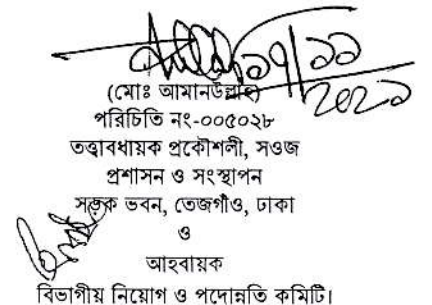 ১৭/১১
২০২১
(মোঃ আমানউল্লাহ)
পরিচিতি নং-০০৫০২৮
তত্ত্বাবধায়ক প্রকৌশলী, সওজ
প্রশাসন ও সংস্থাপন
সড়ক ভবন, তেজগাঁও, ঢাকা
ও
আহবায়ক
বিভাগীয় নিয়োগ ও পদোন্নতি কমিটি।